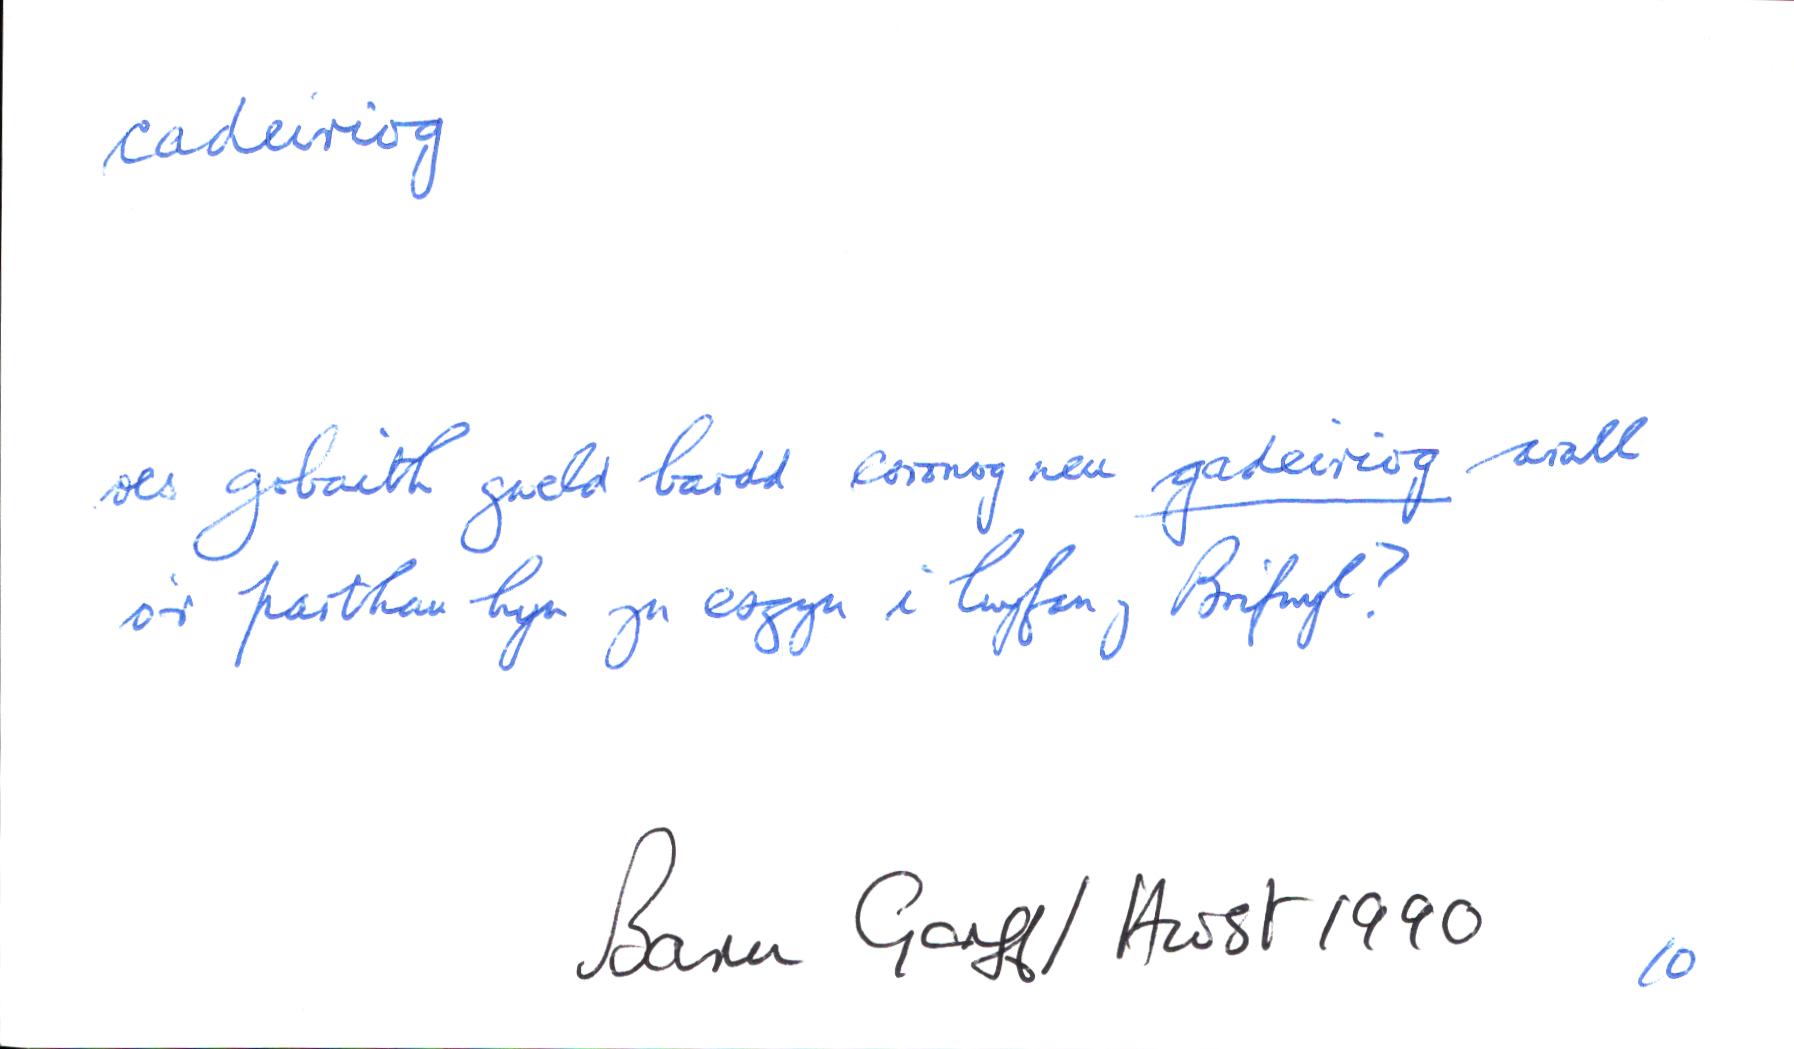 cadeiriog
oes gobaith gweld bardd coronog neu gadeiriog arall
o'r parthau hyn yn esgyn i lwyfan y Brifwyl?
Banw Garff / Awst 1990
10